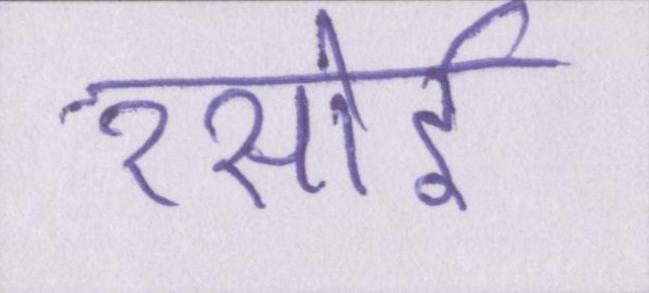 रसोई